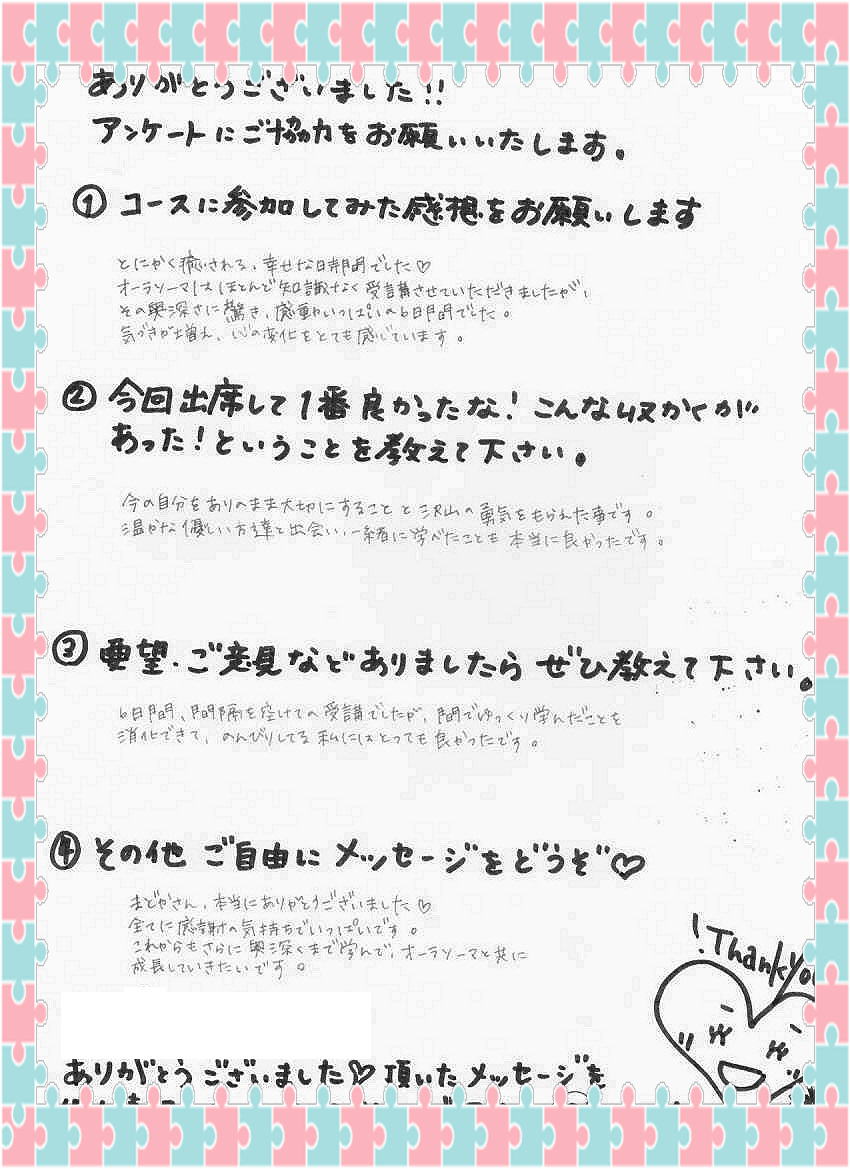 ありがとうございました!!
アンケートにご協力をお願いいたします。
① コースに参加してみた感想をお願いします
とにかく癒される、幸せな日時間でした♡
オーラソーマはほとんど知識なく受講させていただきましたが、
その奥深さに驚き、感動いっぱいの6日間でした。
気づきが増え、心の変化をとても感じています。
② 今回出席して1番良かったな!こんな収かくが
あった!ということを教えて下さい。
今の自分をありのまま大切にすることと沢山の勇気をもられた事です。
温かな優しい方達と出会い、一緒に学べたことも本当に良かったです。
③ 要望・ご意見などありましたらぜひ教えて下さい。
6日間、間隔を空けての受講でしたが、間でゆっくり学んだことを
消化できて、のんびりしてる私にはとっても良かったです。
④ その他 ご自由にメッセージをどうぞ♡
まどかさん、本当にありがとうございました♡
全てに感謝の気持ちでいっぱいです。
これからもさらに奥深くまで学んで、オーラソーマと共に
成長していきたいです。
!Thankyou
ありがとうございました♡頂いたメッセージを